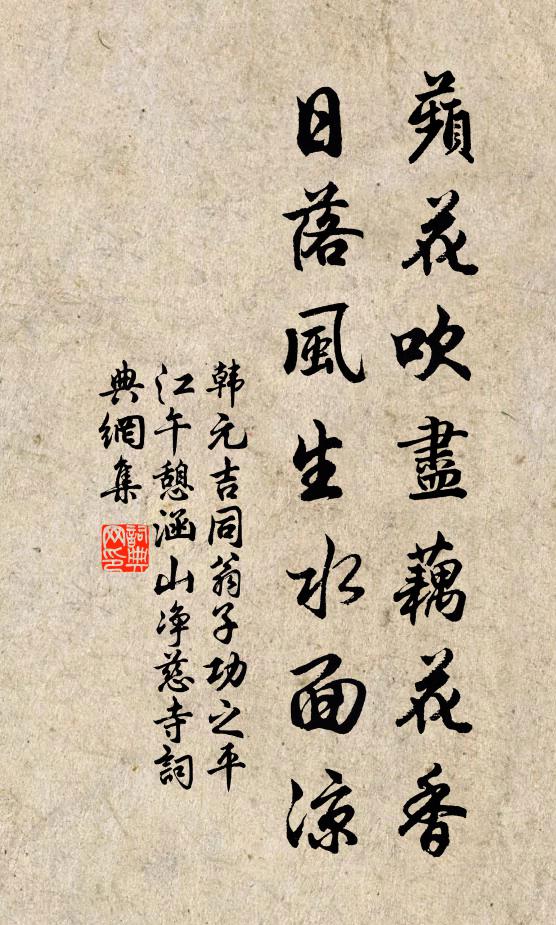 蘋花吹盡藕花香
日落風生水面涼
韩元吉同翁子功之平
江午憩涵山净慈寺詞
典網集
詞典
网印